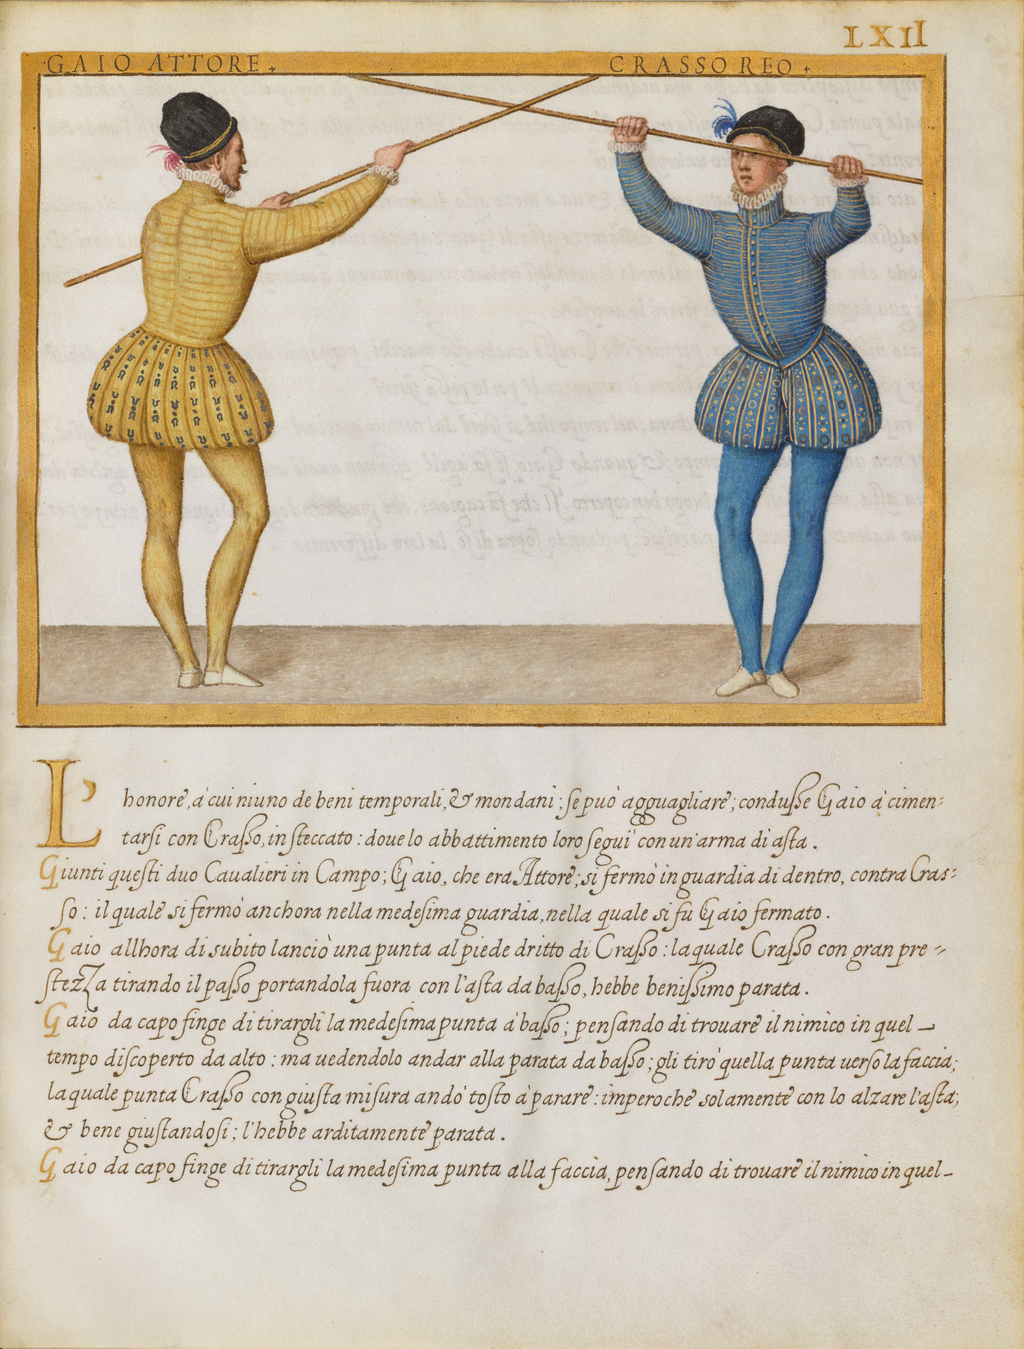 LXII
GAIO ATTORE +
CRASSO REO +
L'honore, à cui niuno de beni temporali, & mondani; se può agguagliare; condusse Gaio à cimen=
tarsi con Crasso, in steccato: doue lo abbattimento loro seguì con un'arma di asta.
Giunti questi duo Caualieri in Campo; Gaio, che era Attore; si fermò in guardia di dentro, contra Cras=
so: il quale si fermò anchora nella medesima guardia, nella quale si fu Gaio fermato.
Gaio allhora di subito lanciò una punta al piede dritto di Crasso: la quale Crasso con gran pre=
stezza tirando il passo portandola fuora con l'asta da basso, hebbe benissimo parata.
Gaio da capo finge di tirargli la medesima punta à basso; pensando di trouare il nimico in quel_
tempo discoperto da alto: ma uedendolo andar alla parata da basso; gli tirò quella punta uerso la faccia;
la quale punta Crasso con giusta misura andò tosto à parare: imperoche solamente con lo alzare l'asta;
& bene giustandosi; l'hebbe arditamente parata.
Gaio da capo finge di tirargli la medesima punta alla faccia, pensando di trouare il nimico in quel_